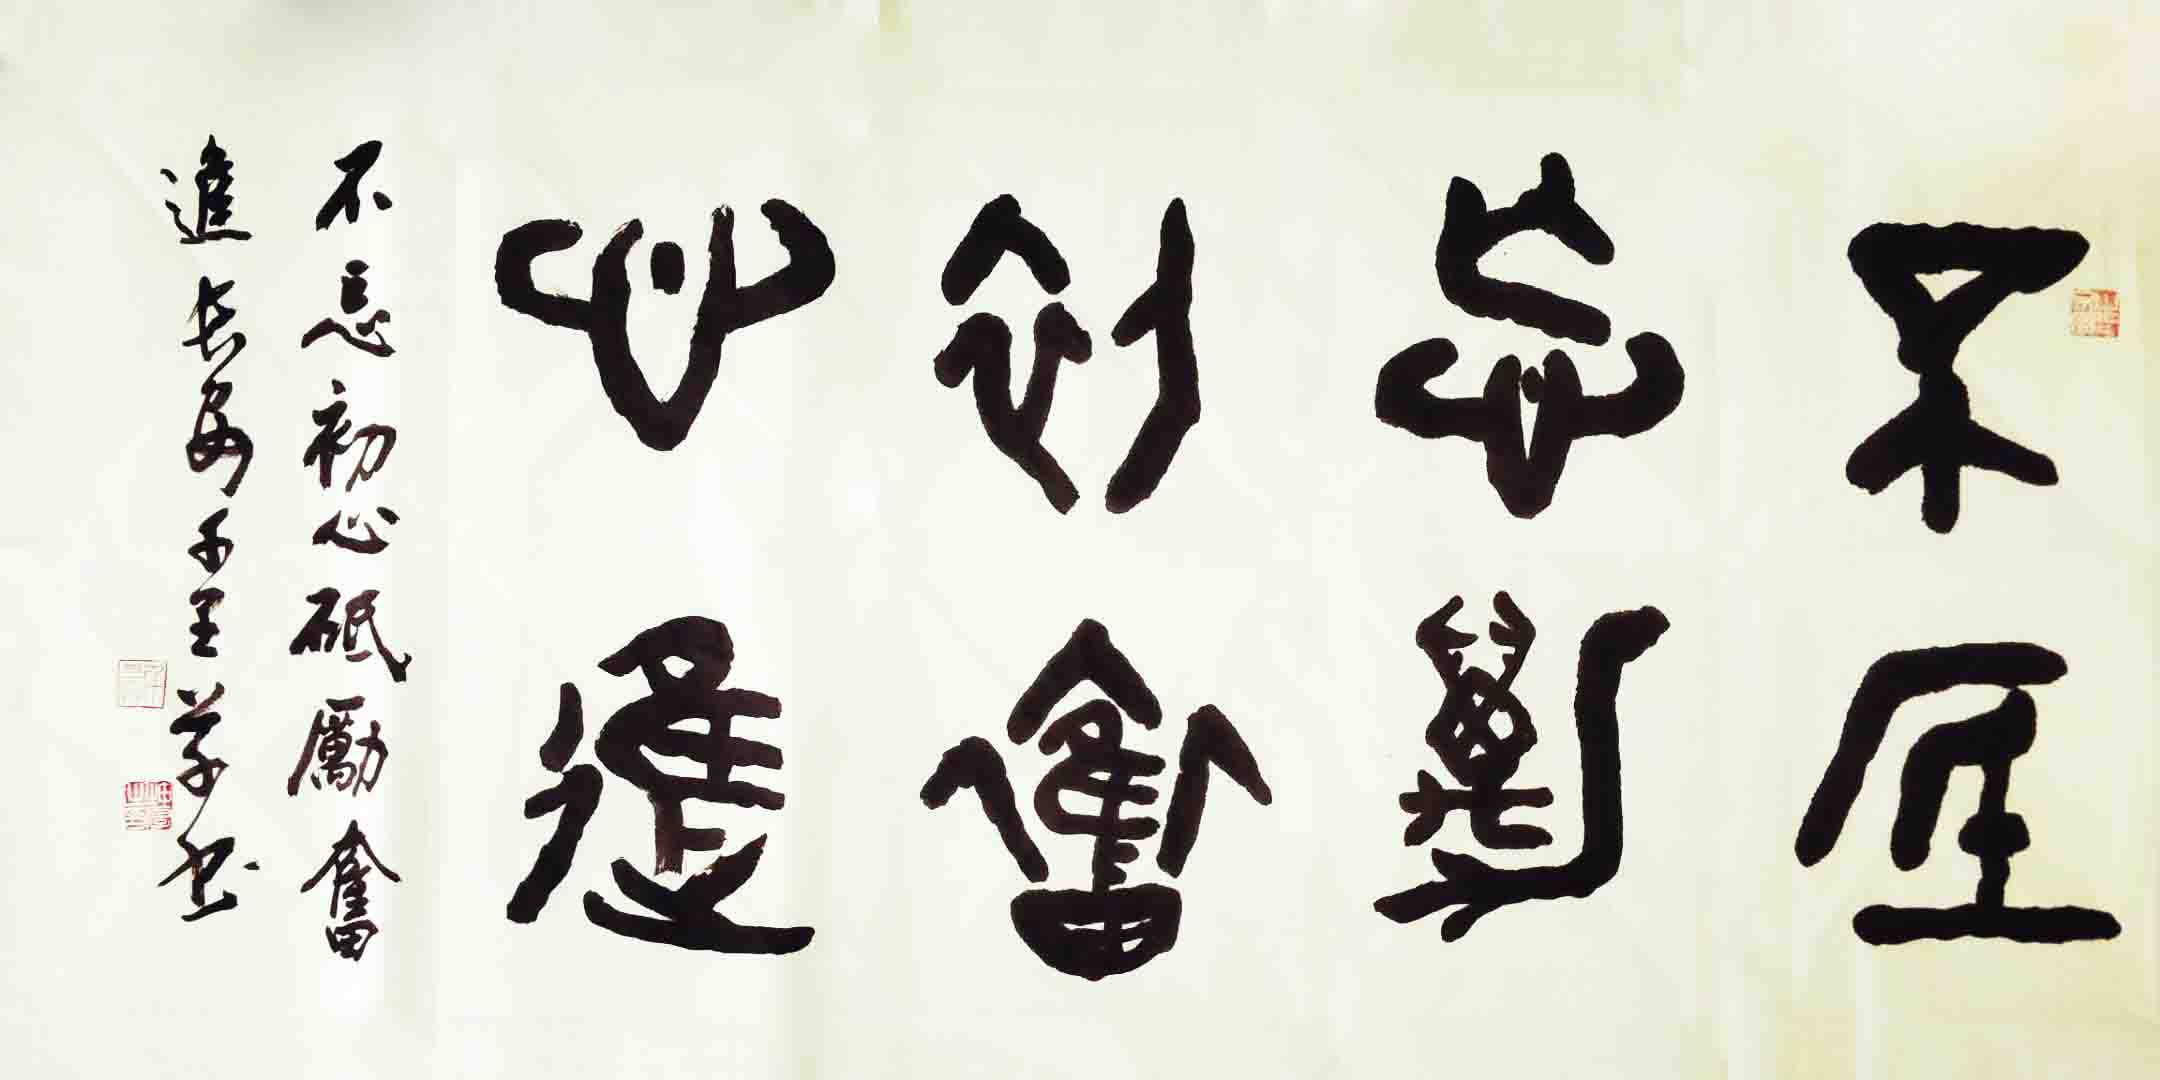 不忘初心
砥勵奮進
不忘初心砥勵奮
進長安千里草書